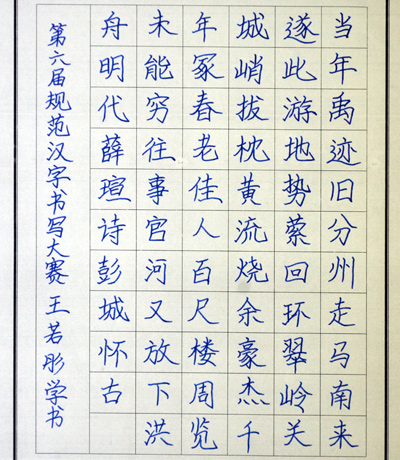 当年禹迹旧分州走马南来
遂此游地势萦回环翠岭关
城峭拔枕黄流烧余豪杰千
年冢春老佳人百尺楼周览
未能穷往事官河又放下洪
舟明代薛瑄诗彭城怀古
第六届规范汉字书写大赛王若彤学书